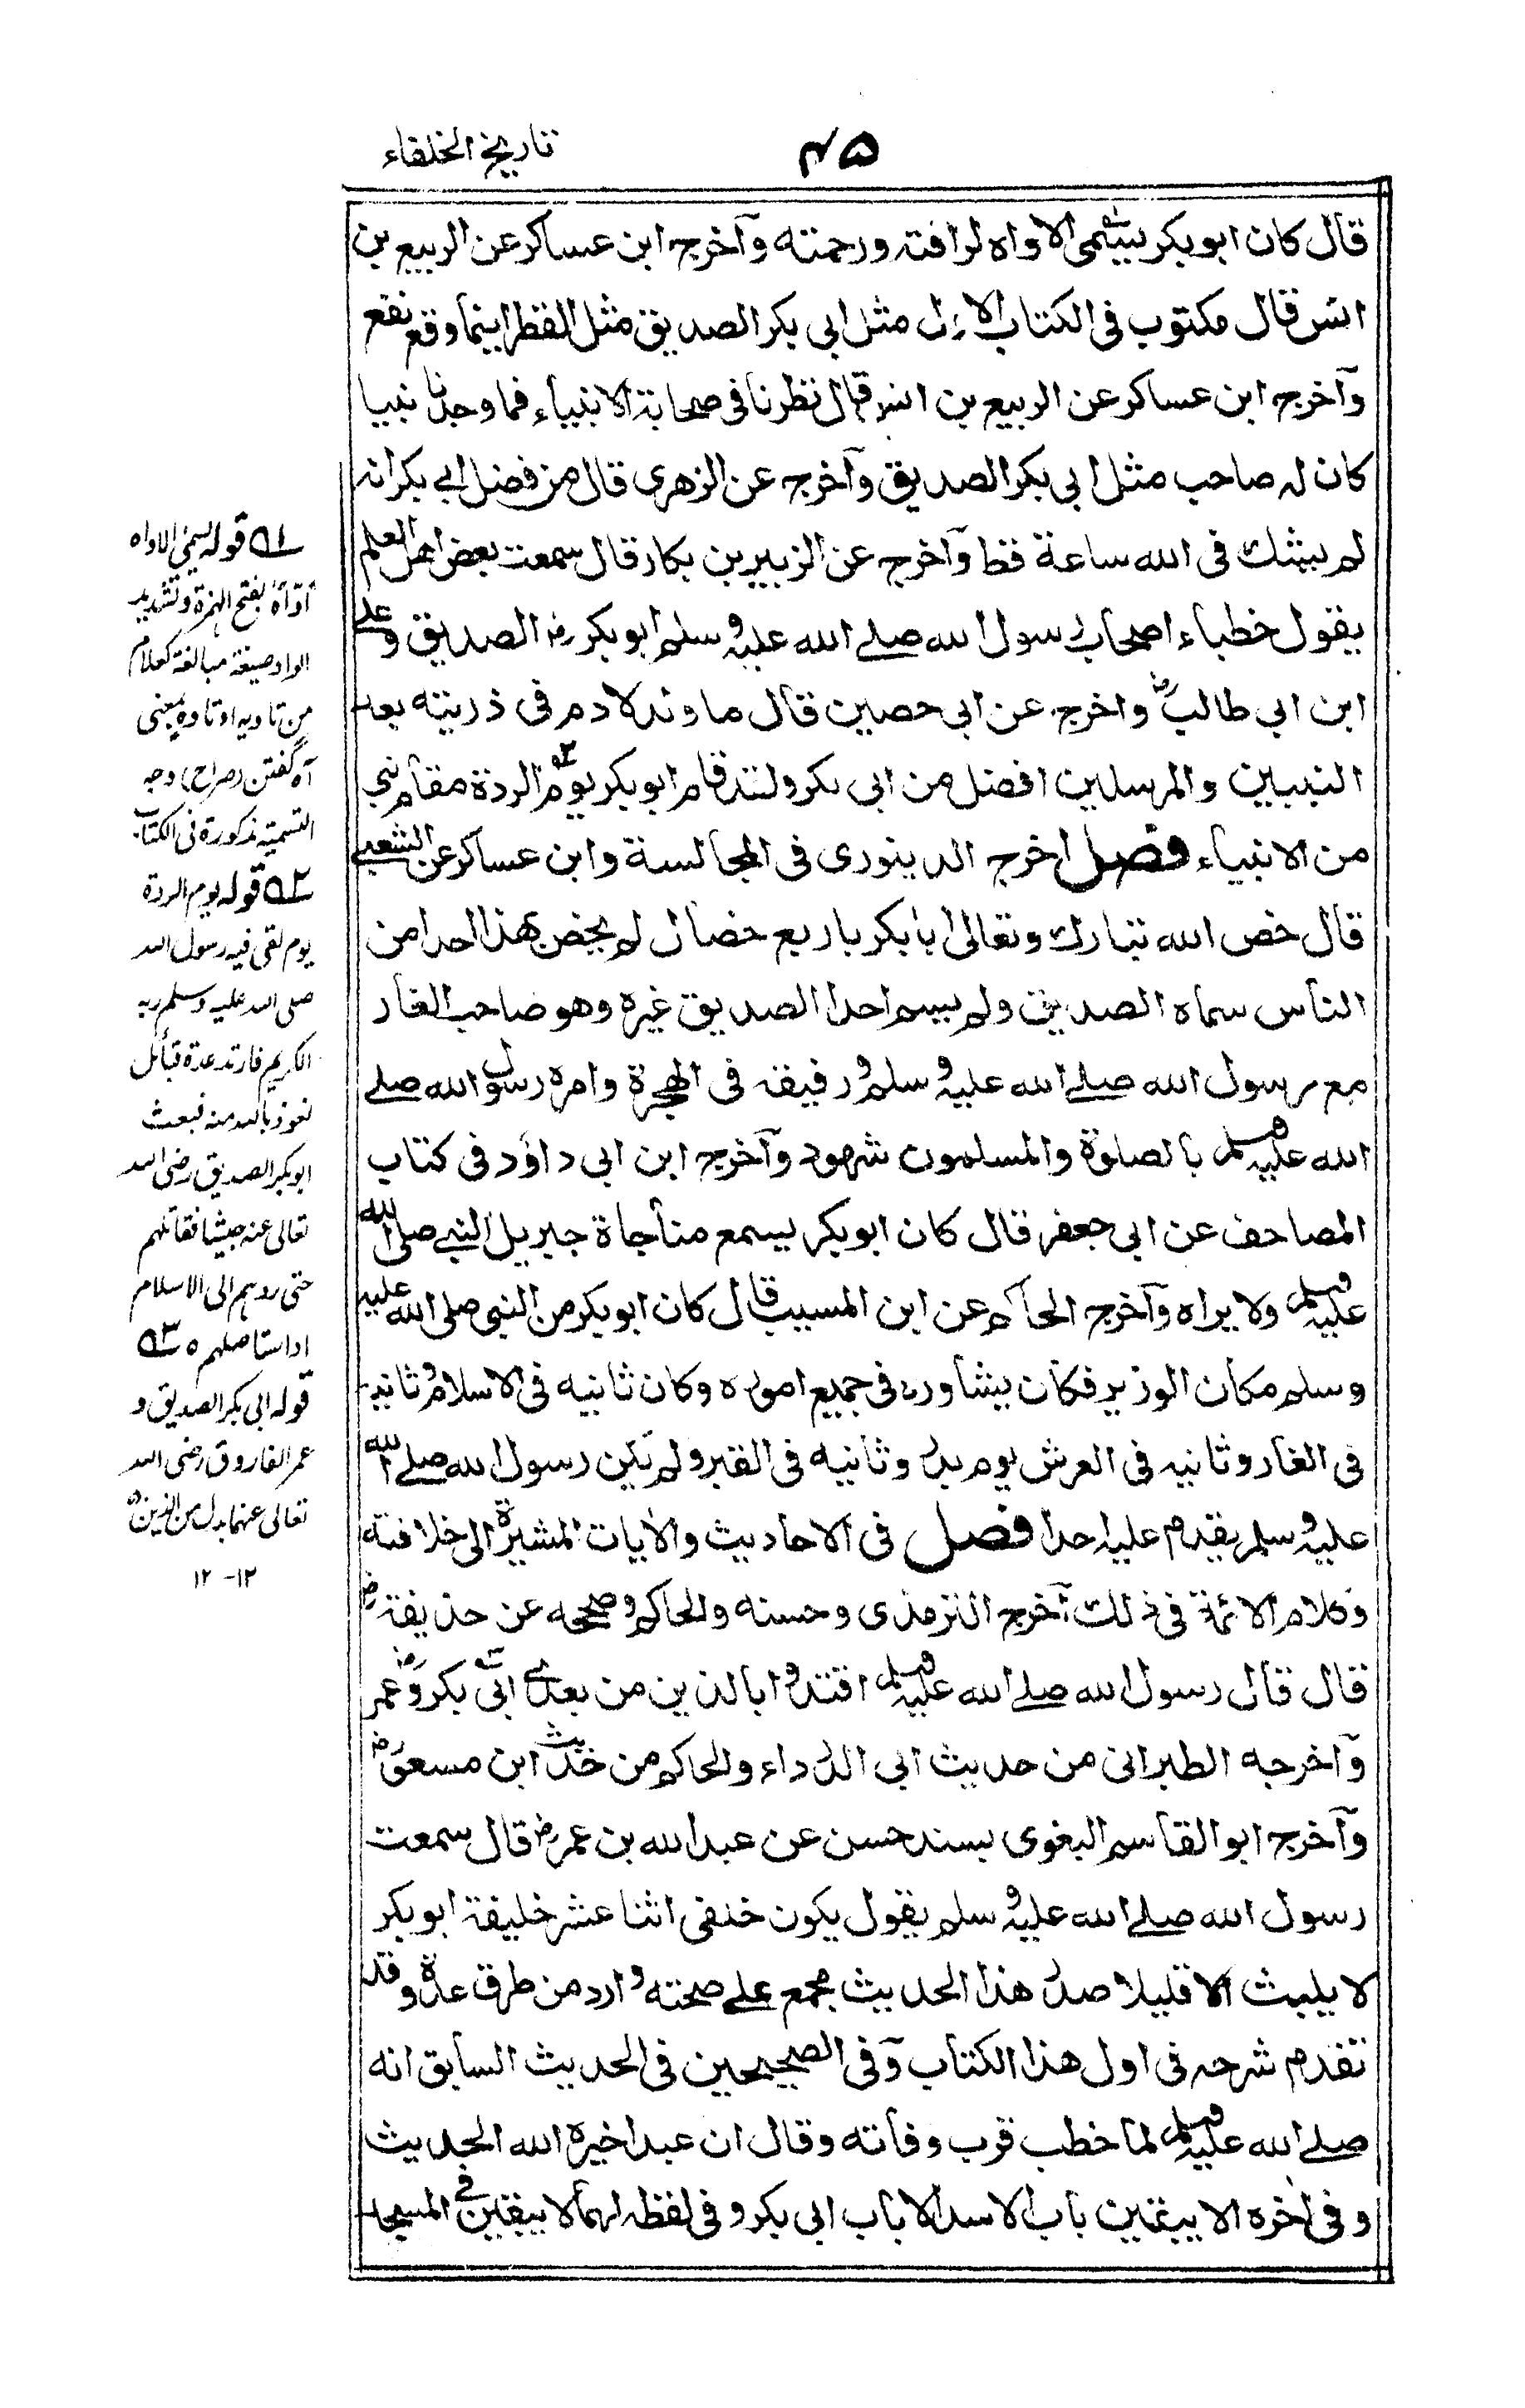 تاريخ الخلفاء
۴۵
قال كان ابو بكر يسمى الاواه لرافته ورحمته وآخرج ابن عساكر عن الربيع بن
انس قال مكتوب فى الكتاب الاول مثل ابى بكر الصديق مثل القطر اينما وقع نفع
وآخرج ابن عساكر عن الربيع بن انس قال نظرنا فى صحابة الانبياء فما وجدنا نبيا
كان له صاحب مثل ابى بكر الصديق وآخرج عن الزهرى قال من فضل ابى بكر انه
لم يشك فى الله ساعة قط وآخرج عن الزبير بن بكار قال سمعت بعض اهل العلم
يقول خطباء اصحاب رسول الله صلے الله عليه وسلم ابو بكر رض الصديق وعلے
ابن ابى طالب رض واخرج عن ابى حصين قال ما ولد لادم فى ذريته بعد
النبيين والمرسلين افضل من ابى بكر ولقد قام ابو بكر يوم ۲ الردة مقام نبى
من الانبياء فصل اخرج الدينورى فى المجالسة وابن عساكر عن الشعبے
قال خص الله تبارك وتعالى ابا بكر باربع خصال لم يخص بهذا احدا من
الناس سماه الصديق ولم يسم احدا الصديق غيره وهو صاحب الغار
مع رسول الله صلے الله عليه وسلم ورفيقه فى الهجرة وامره رسول الله صلے
الله عليه وسلم بالصلوة والمسلمون شهود وآخرج ابن ابى داؤد فى كتاب
المصاحف عن ابى جعفر قال كان ابو بكر يسمع مناجاة جبريل النبے صلى الله
عليه وسلم ولا يراه وآخرج الحاكم عن ابن المسيب قال كان ابو بكر من النبى صلى الله عليه
وسلم مكان الوزير فكان يشاوره فى جميع اموره وكان ثانيه فى الاسلام وثانيه
فى الغار وثانيه فى العرش يوم بدر وثانيه فى القبر ولم يكن رسول الله صلے الله
عليه وسلم يقدم عليه احدا فصل فى الاحاديث والآيات المشيرة الى خلافته
وكلام الائمة فى ذلك آخرج الترمذى وحسنه والحاكم وصححه عن حذيفة رض
قال قال رسول الله صلے الله عليه وسلم اقتدوا بالذين من بعدى ابى ۳ بكر رض وعمر
وآخرجه الطبرانى من حديث ابى الدرداء والحاكم من حديث ابن مسعود رض
وآخرج ابو القاسم البغوى بسند حسن عن عبد الله بن عمر رض قال سمعت
رسول الله صلے الله عليه وسلم يقول يكون خلفى اثنا عشر خليفة ابو بكر
لا يلبث الا قليلا صدر هذا الحديث مجمع علے صحته وارد من طرق عدة وقد
تقدم شرحه فى اول هذا الكتاب وفى الصحيحين فى الحديث السابق انه
صلے الله عليه وسلم لما خطب قرب وفاته وقال ان عبدا خيره الله الحديث
وفى اخره الا يبقين باب الا سد الا باب ابى بكر وفى لفظ لهما لا يبقين فى المسجد
۱ قوله يسمى الاواه
اَوَّاه بفتح الهمزة وتشديد
الواو صيغة مبالغة كعلام
من تاويه او تاوه بمعنى
آه گفتن (صراح) وجه
التسمية مذكورة فى الكتاب
۲ قوله يوم الردة
يوم لقى فيه رسول الله
صلى الله عليه وسلم ربه
الكريم فارتد عدة قبائل
نعوذ بالله منه فبعث
ابو بكر الصديق رضى الله
تعالى عنه جيشا فقاتلهم
حتى ردهم الى الاسلام
او استاصلهم ۵ ۳
قوله ابى بكر الصديق و
عمر الفاروق رضى الله
تعالى عنهما بدل من الذين
۱۲-۱۲